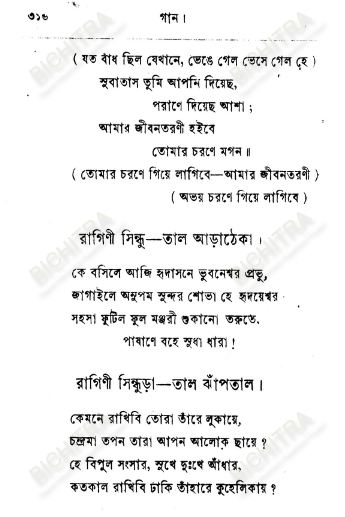 ৩১৬ গান।
( যত বাঁধ ছিল যেখানে, ভেঙে গেল ভেসে গেল হে )
সুবাতাস তুমি আপনি দিয়েছ,
পরাণে দিয়েছ আশা ;
আমার জীবনতরণী হইবে
তোমার চরণে মগন॥
( তোমার চরণে গিয়ে লাগিবে—আমার জীবনতরণী )
( অভয় চরণে গিয়ে লাগিবে )
রাগিণী সিন্ধু—তাল আড়াঠেকা।
কে বসিলে আজি হৃদাসনে ভুবনেশ্বর প্রভু,
জাগাইলে অনুপম সুন্দর শোভা হে হৃদয়েশ্বর
সহসা ফুটিল ফুল মঞ্জরী শুকানো তরুতে,
পাষাণে বহে সুধা ধারা !
রাগিণী সিন্ধুড়া—তাল ঝাঁপতাল।
কেমনে রাখিবি তোরা তাঁরে লুকায়ে,
চন্দ্রমা তপন তারা আপন আলোক ছায়ে ?
হে বিপুল সংসার, সুখে দুঃখে আঁধার,
কতকাল রাখিবি ঢাকি তাঁহারে কুহেলিকায় ?
BICHITRA